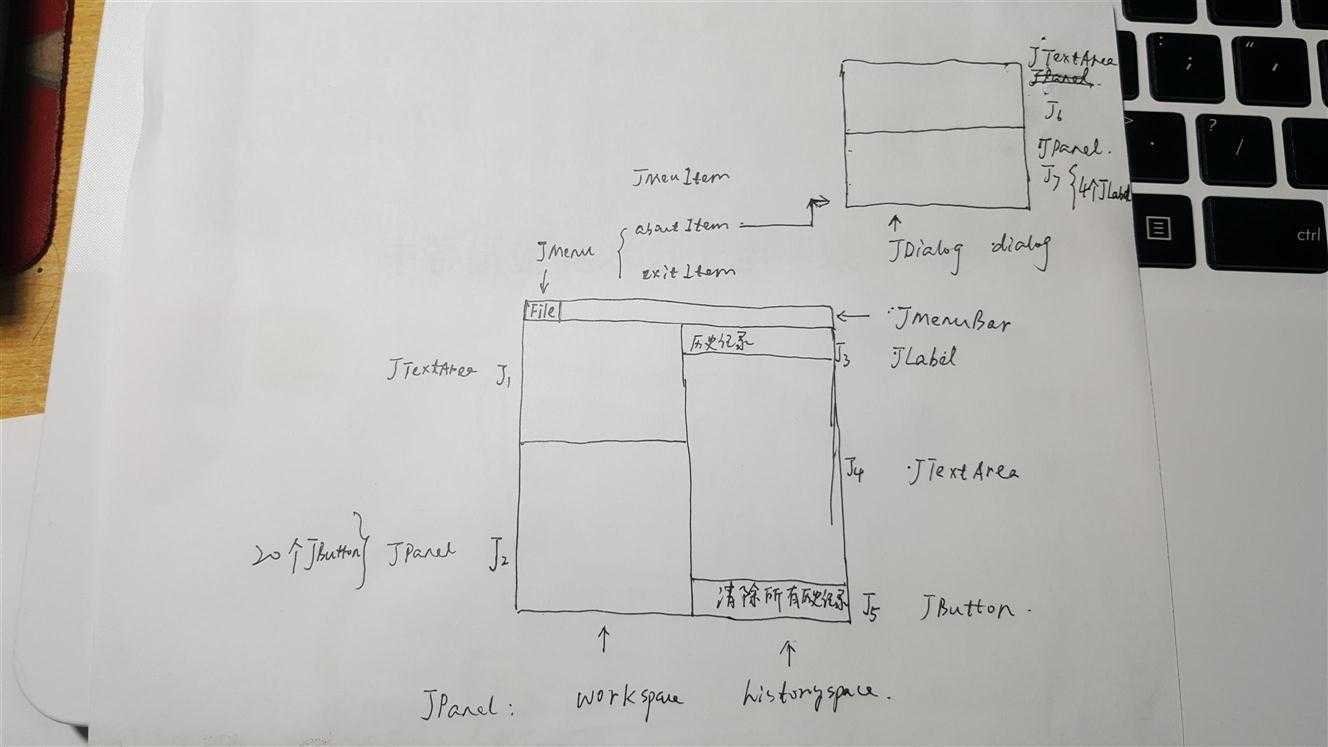 JTextArea
JPanel.
J6
JPanel.
J7 { 4个JLabel
JMenuItem
aboutItem
JMenu {
exitItem
JDialog dialog
File
JMenuBar
历史记录
J3 JLabel
JTextArea J1
J4 JTextArea
20个JButton } JPanel J2
清除所有历史记录
J5 JButton.
JPanel: workspace historyspace.
;
"
,
>
.
?
/
ctrl